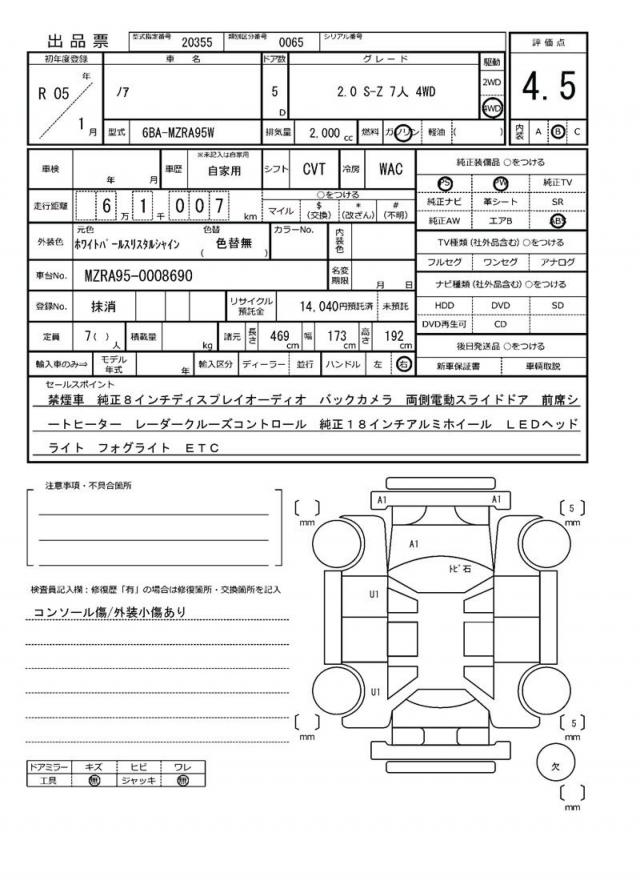 出品票
型式指定番号 20355 類別区分番号 0065 シリアル番号
評価点
4.5
初年度登録 車名 ドア数 グレード 駆動
R 05 年 1 月
ノア
5 D
2.0 S-Z 7人 4WD
2WD
4WD
型式 6BA-MZRA95W 排気量 2,000 cc 燃料 ガソリン 軽油 ( )
内装 A B C
車検 年 月 車歴 ※未記入は自家用 自家用 シフト CVT 冷房 WAC
純正装備品 ○をつける
PS PW 純正TV
純正ナビ 革シート SR
純正AW エアB ABS
走行距離 6 万 1 千 0 0 7 km
○をつける
マイル $ (交換) * (改ざん) # (不明)
外装色 元色 ホワイトパールスリスタルシャイン 色替 ( 色替無 ) カラーNo. 内装色
TV種類 (社外品含む) ○をつける
フルセグ ワンセグ アナログ
車台No. MZRA95-0008690 名変期限 月 日
ナビ種類 (社外品含む) ○をつける
登録No. 抹消 リサイクル預託金 14,040円預託済 未預託
HDD DVD SD
DVD再生可 CD
定員 7( ) 人 積載量 kg 諸元 長さ 469 cm 幅 173 cm 高さ 192 cm
後日発送品 ○をつける
輸入車のみ⇒ モデル年式 年 輸入区分 ディーラー 並行 ハンドル 左 右
新車保証書 車輌取説
セールスポイント
禁煙車 純正8インチディスプレイオーディオ バックカメラ 両側電動スライドドア 前席シ
ートヒーター レーダークルーズコントロール 純正18インチアルミホイール LEDヘッド
ライト フォグライト ETC
注意事項・不具合箇所
検査員記入欄：修復歴「有」の場合は修復箇所・交換箇所を記入
コンソール傷/外装小傷あり
ドアミラー キズ ヒビ ワレ
工具 無 ジャッキ 無
A1 A1
[ ] mm
[ 5 ] mm
A1
トビ石
U1
U1
[ ] mm
[ 5 ] mm
欠
[ ] mm